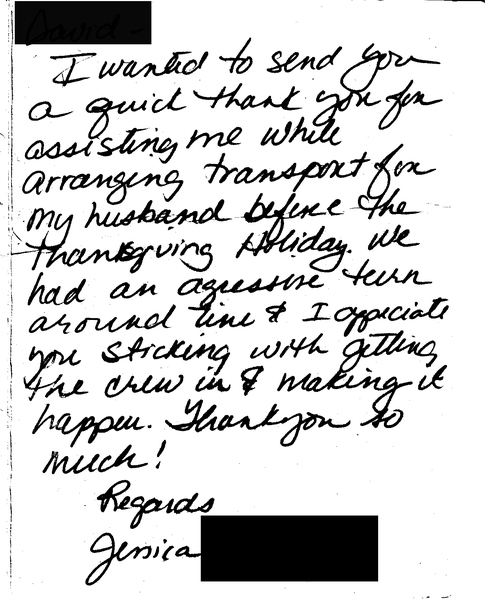 I wanted to send you
a quick thank you for
assisting me while
arranging transport for
my husband before the
Thanksgiving Holiday. We
had an agressive turn
around time & I appeciate
you sticking with getting
the crew in & making it
happen. Thank you so
much!
Regards
Jessica